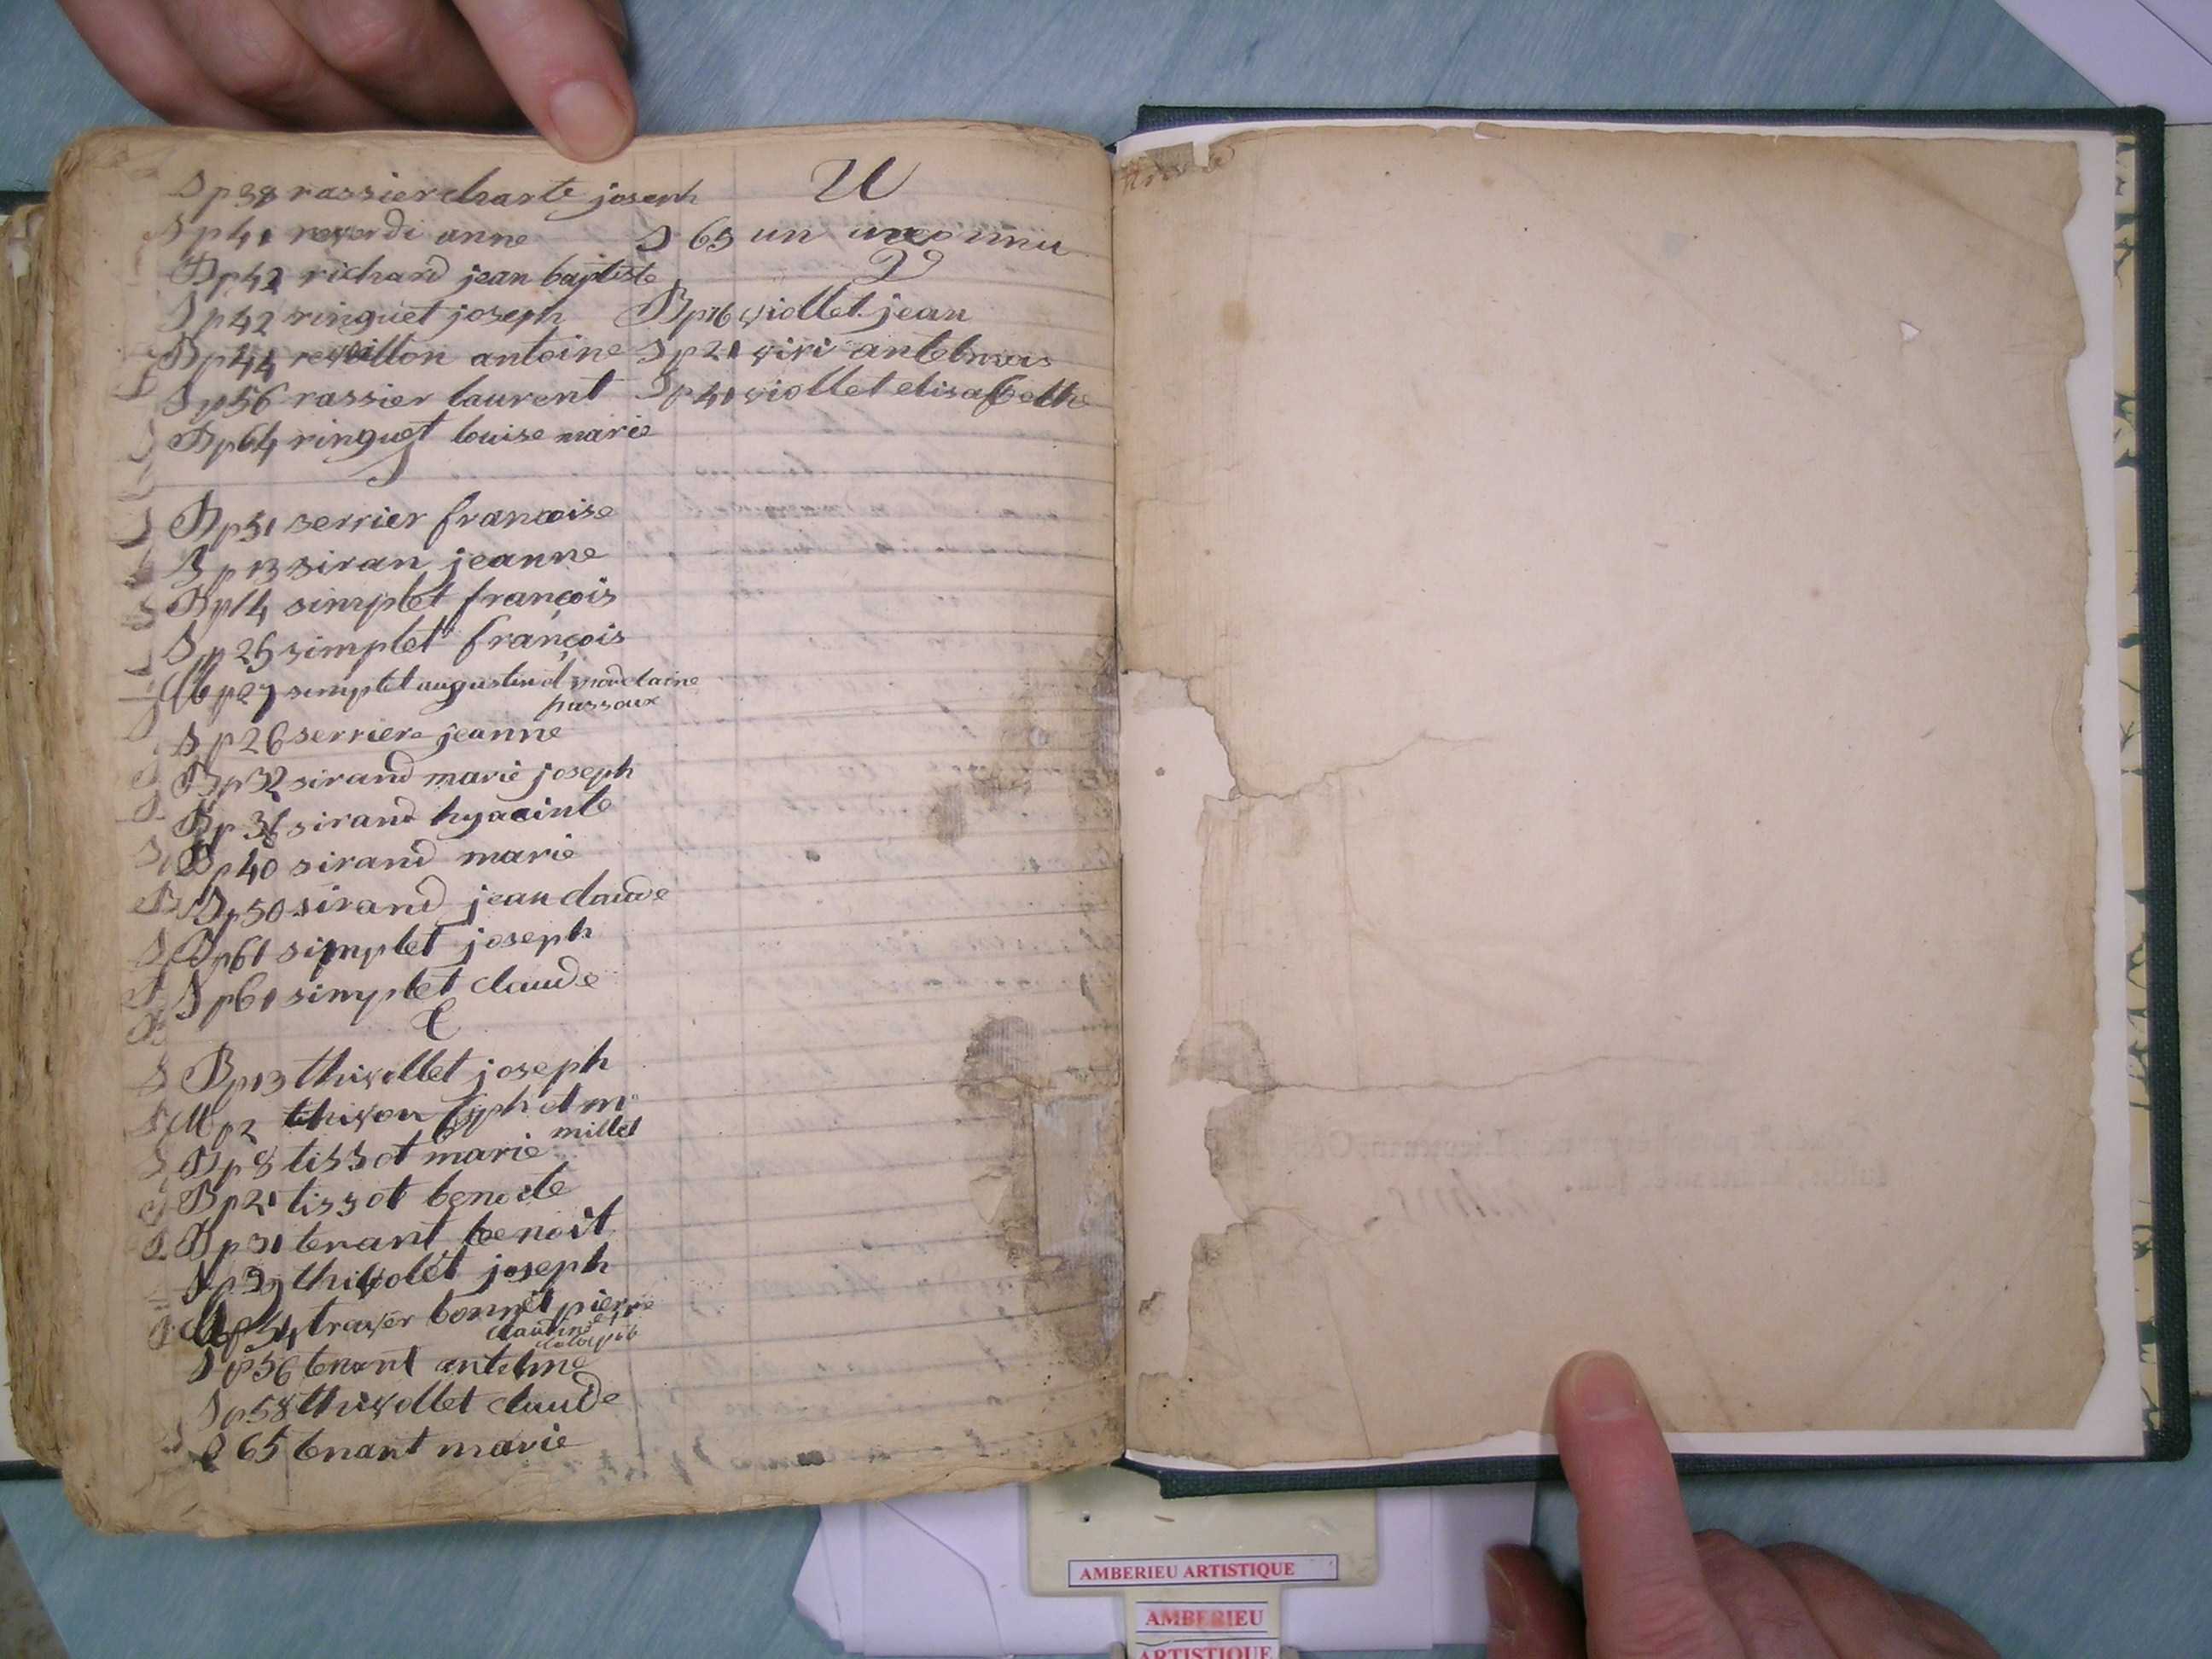 S p 38 rassier charte joseph
S p 41 reverdi anne
B p 42 richard jean baptiste
S p 42 ringuet joseph
B p 44 revillon antoine
S p 56 rassier laurent
B p 64 ringuet louise marie
S
B p 51 serrier francoise
S p 13 siran jeanne
B p 14 simplet françois
S p 25 simplet françois
M p 27 simplet augustin et madelaine
passaux
S p 26 serriere jeanne
B p 32 sirand marie joseph
B p sirand hyacinte
p 40 sirand marie
B p 50 sirand jean claude
B p 61 simplet joseph
S p 61 simplet claude
t
B p 13 thivollet joseph
M p 2 thivon jph et m
millet
B p 8 tissot marie
B p 21 tissot benoite
B p 31 tenant benoit
S p 39 thivolet joseph
M p 54 traver bonnet pierre
claudine
S p 56 tenant antelme
S p 58 thivollet claude
S 65 tenant marie
U
S 65 un inconnu
V
B p 16 viollet jean
S p 21 viri antelmois
S p 41 viollet elisabethe
AMBERIEU ARTISTIQUE
AMBERIEU
ARTISTIQUE